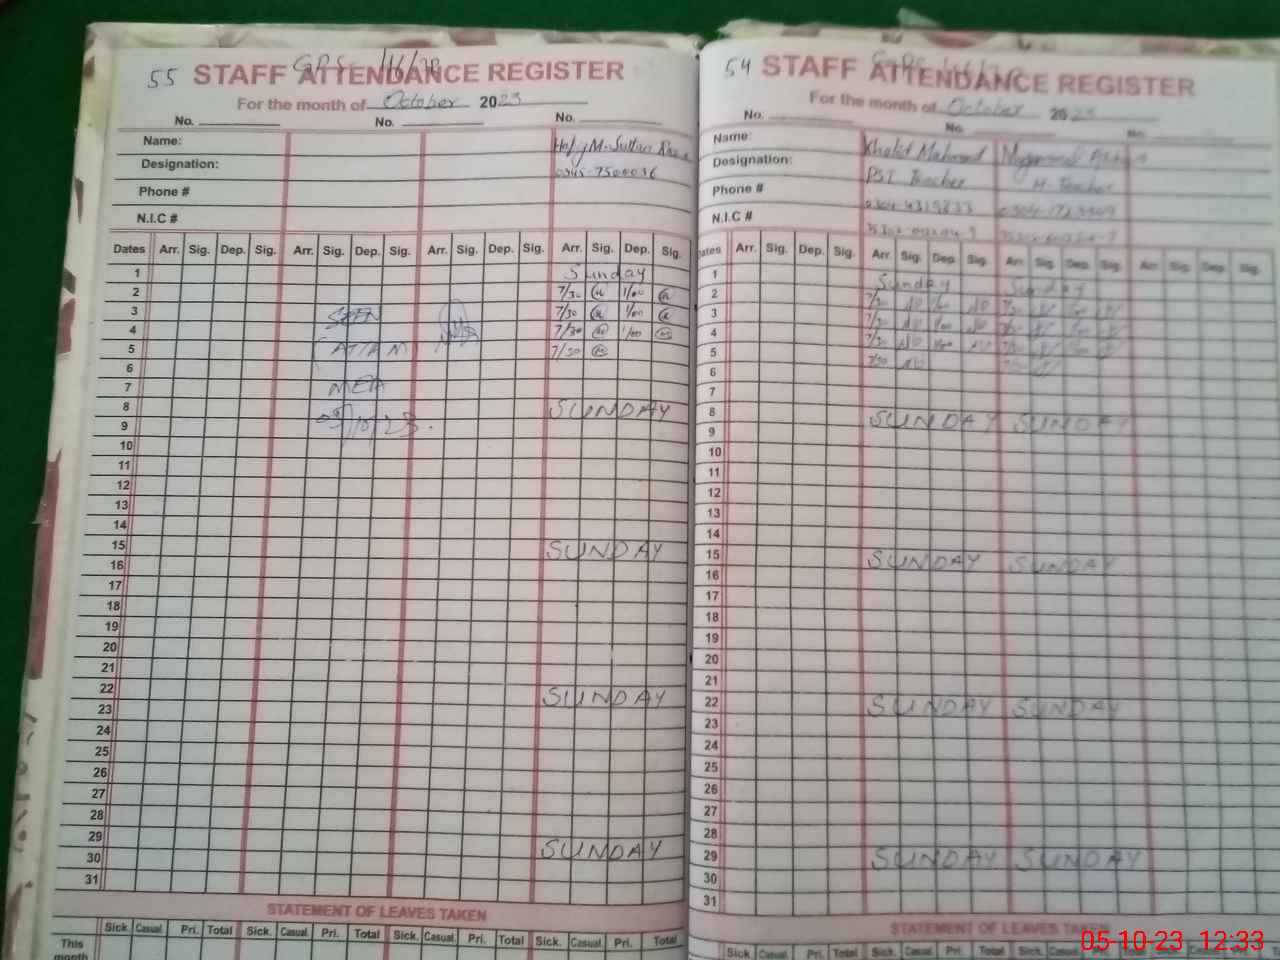 55 STAFF ATTENDANCE REGISTER
For the month of October 2023
No. No. No.
Name:
Designation:
0345-7500036
Phone #
N.I.C #
Dates Arr. Sig. Dep. Sig. Arr. Sig. Dep. Sig. Arr. Sig. Dep. Sig. Arr. Sig. Dep. Sig.
1 Sunday
2 7/30 1/00
3 SEEN 7/30 1/00
4 7/30 1/00
5 7/30
6
7 MEA
8 SUNDAY
9
10
11
12
13
14
15 SUNDAY
16
17
18
19
20
21
22 SUNDAY
23
24
25
26
27
28
29 SUNDAY
30
31
STATEMENT OF LEAVES TAKEN
This month Sick. Casual. Pri. Total Sick. Casual. Pri. Total Sick. Casual. Pri. Total Sick. Casual. Pri. Total
54 STAFF ATTENDANCE REGISTER
For the month of October 2023
No. No. No.
Name: Khalid Mahmood
Designation: PST Teacher H. Teacher
Phone #
N.I.C #
Dates Arr. Sig. Dep. Sig. Arr. Sig. Dep. Sig. Arr. Sig. Dep. Sig. Arr. Sig. Dep. Sig.
1 Sunday Sunday
2 7/30
3 7/30
4 7/30
5 7/30
6
7
8 SUNDAY SUNDAY
9
10
11
12
13
14
15 SUNDAY SUNDAY
16
17
18
19
20
21
22 SUNDAY SUNDAY
23
24
25
26
27
28
29 SUNDAY SUNDAY
30
31
STATEMENT OF LEAVES TAKEN
Sick. Casual. Pri. Total Sick. Casual. Pri. Total
05-10-23 12:33